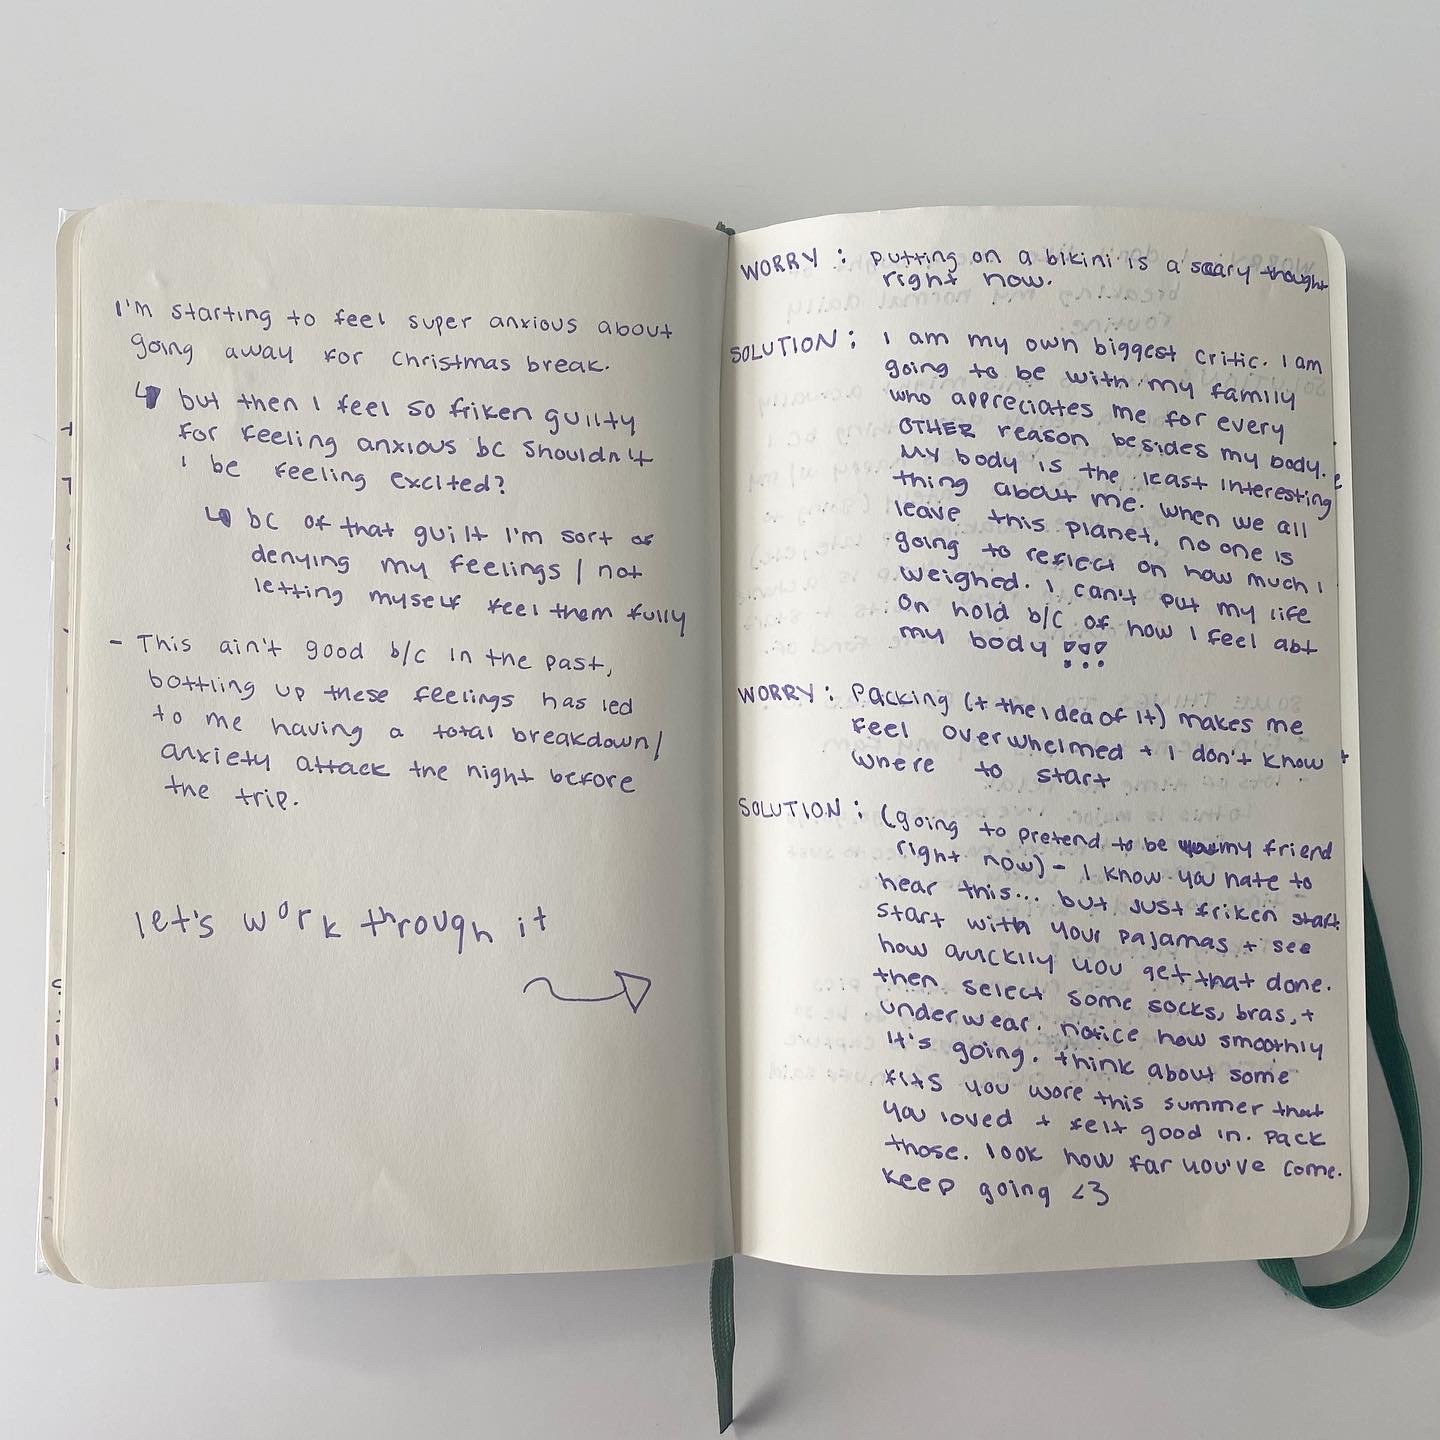 I'm starting to feel super anxious about
going away for Christmas break.
but then I feel so friken guilty
for feeling anxious bc shouldn't
I be feeling excited?
bc of that guilt I'm sort of
denying my feelings / not
letting myself feel them fully
- This ain't good b/c in the past,
bottling up these feelings has led
to me having a total breakdown/
anxiety attack the night before
the trip.
let's work through it
WORRY: putting on a bikini is a scary thought
right now.
SOLUTION: I am my own biggest critic. I am
going to be with my family
who appreciates me for every
OTHER reason besides my body.
My body is the least interesting
thing about me. When we all
leave this planet, no one is
going to reflect on how much I
weighed. I can't put my life
on hold b/c of how I feel abt
my body!!!
WORRY: Packing (+ the idea of it) makes me
feel overwhelmed + I don't know
where to start
SOLUTION: (going to pretend to be my friend
right now) - I know you hate to
hear this... but just friken start.
start with your pajamas + see
how quickly you get that done.
then select some socks, bras, +
underwear. notice how smoothly
it's going. think about some
fits you wore this summer that
you loved + felt good in. Pack
those. look how far you've come.
keep going <3